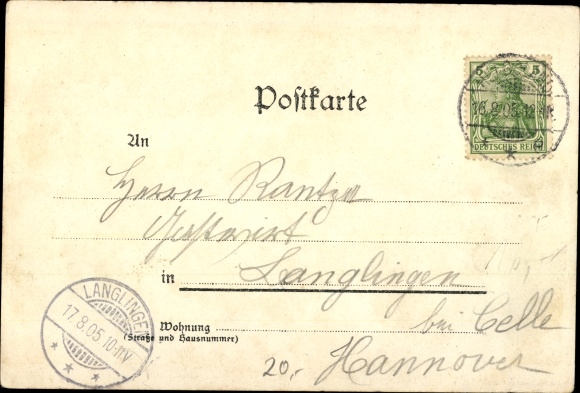 Postkarte
5 5
16.8.05.12
DEUTSCHES REICH
An
Herrn Rantzau
Gastwirt
in Langlingen
LANGLINGEN
17.8.05.10-11V
Wohnung
(Straße und Hausnummer)
bei Celle
20,- Hannover